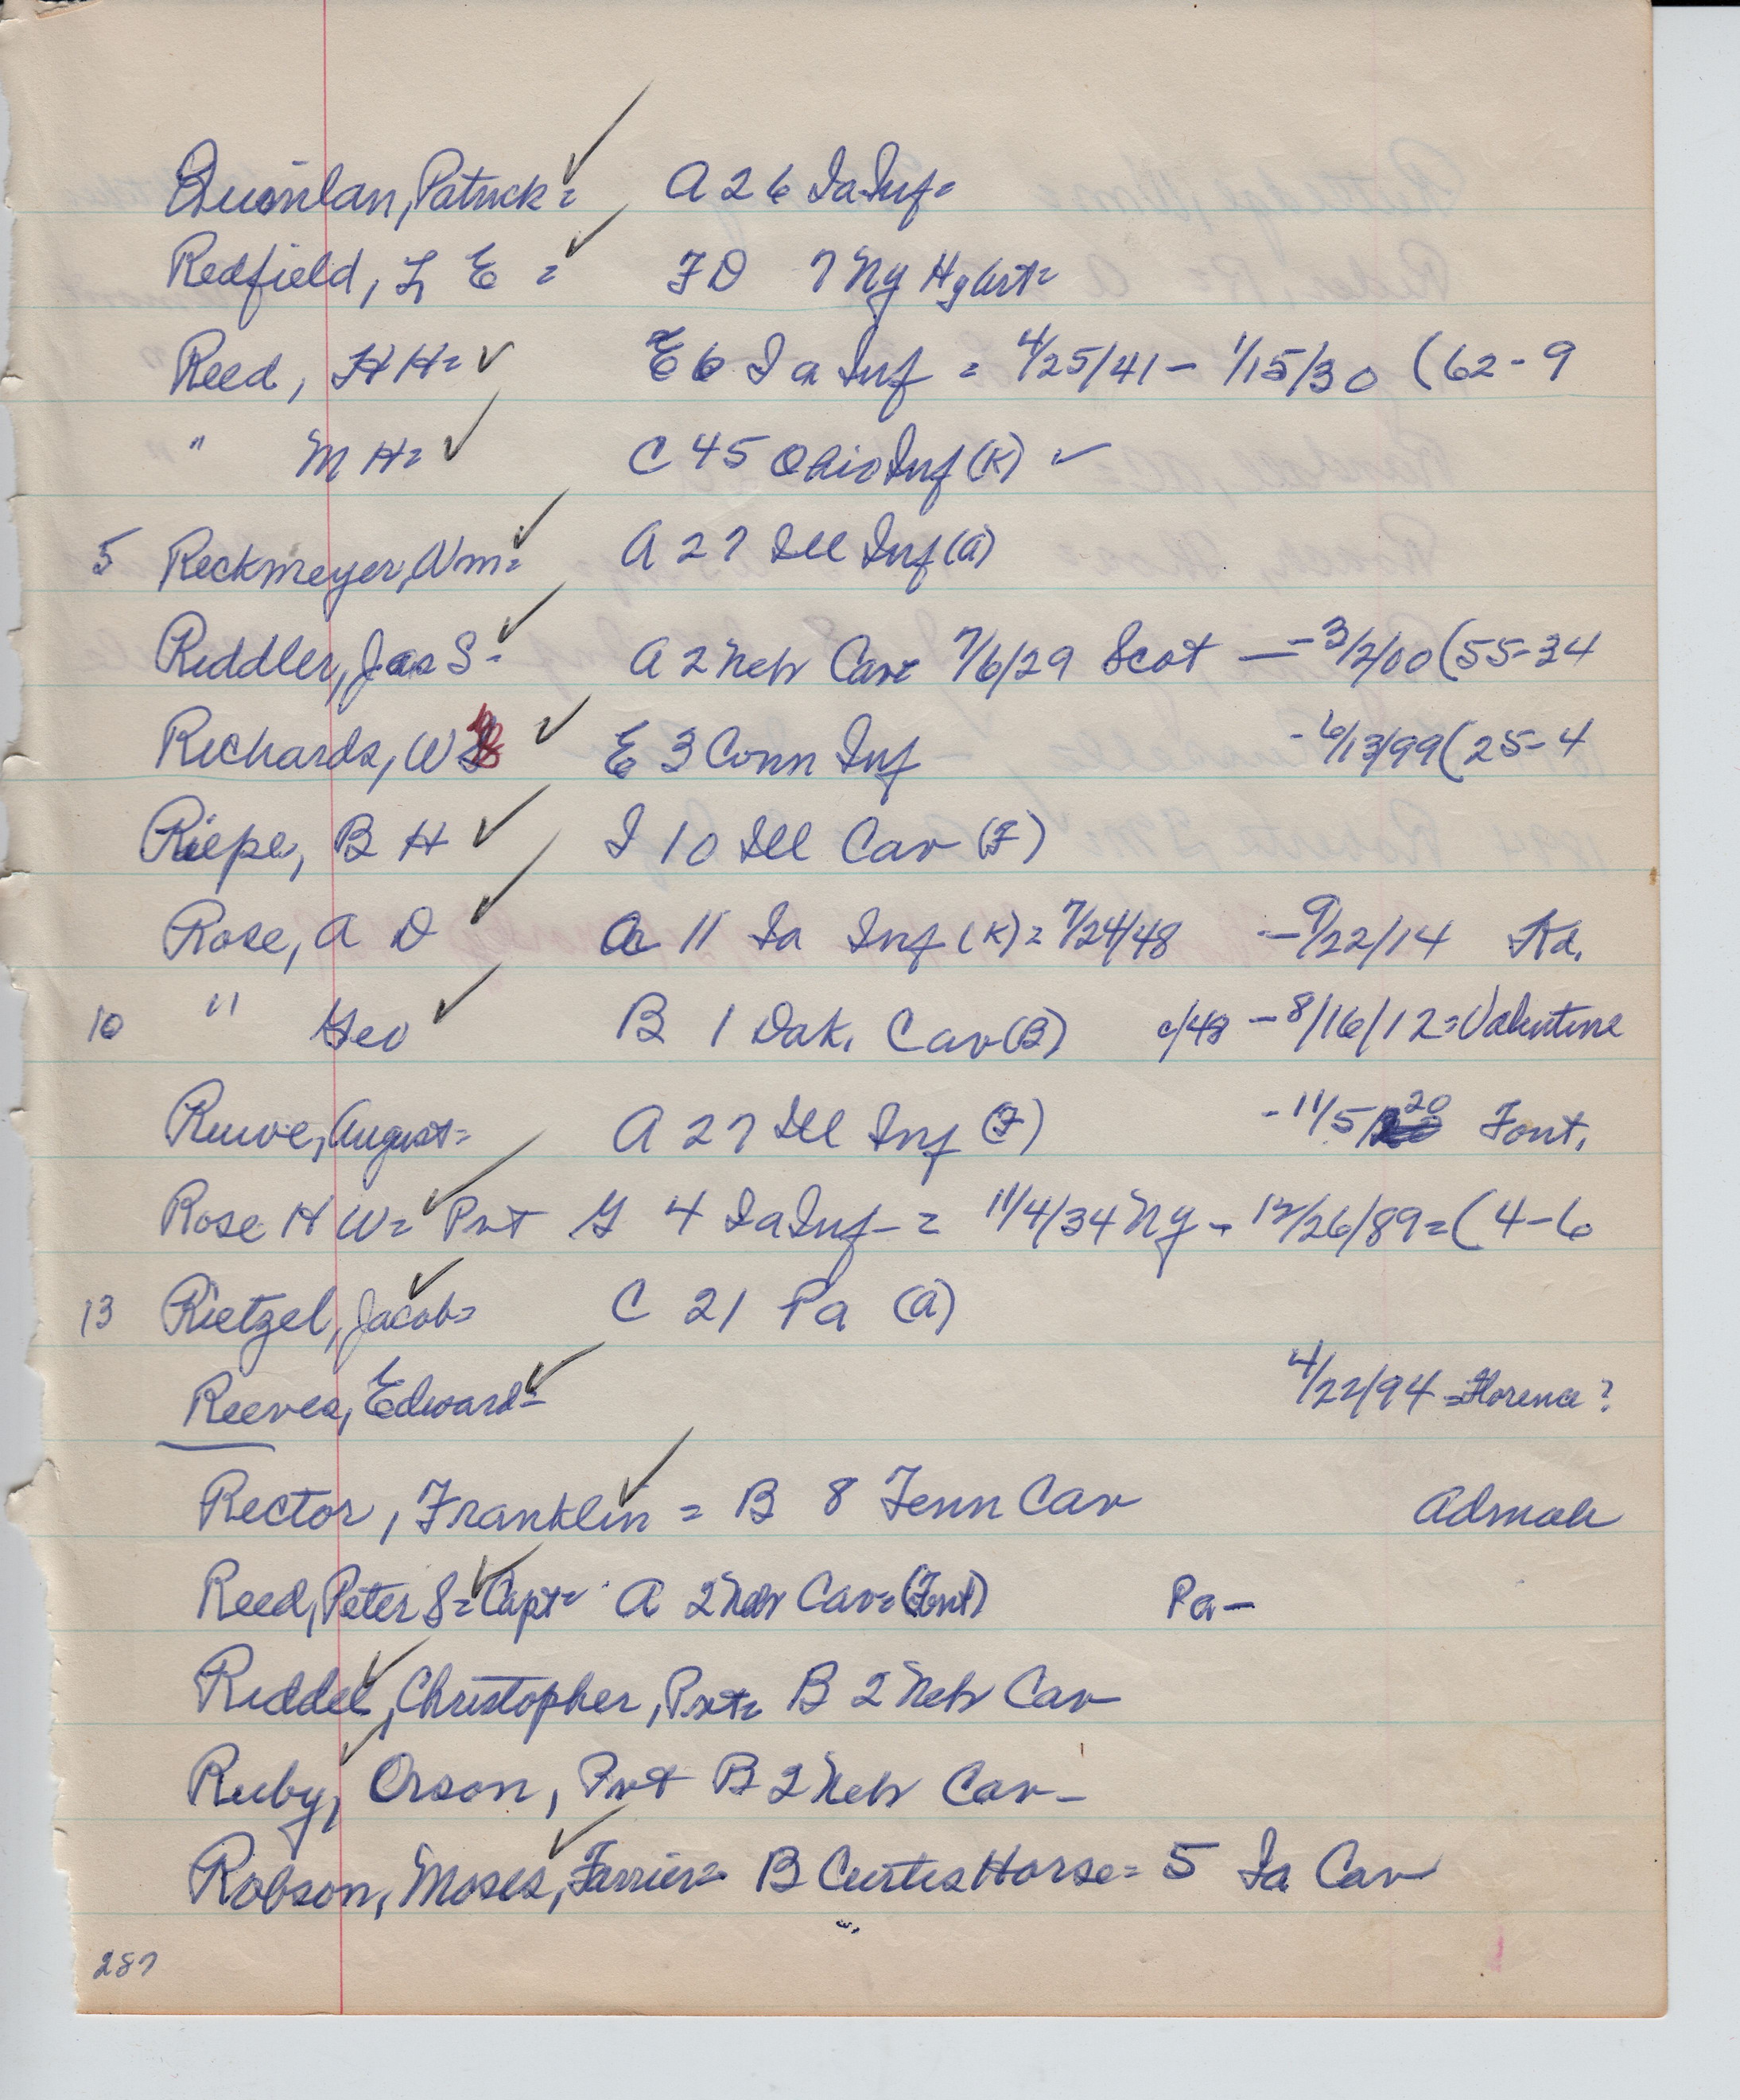 Quinlan, Patrick = ✓ A 26 Ia Inf =
Redfield, L E = ✓ F D 7 Ny Hy Art =
Reed, H H = ✓ E 6 Ia Inf = 4/25/41 - 1/15/30 (62-9
" M H = ✓ C 45 Ohio Inf (K) ✓
5 Reckmeyer, Wm = ✓ A 27 Ill Inf (A)
Riddler, Jas S = ✓ A 2 Neb Cav = 7/6/29 Scot — = 3/2/00 (55-34
Richards, W ✓ E 3 Conn Inf - 6/13/99 (25-4
Riepe, B H ✓ I 10 Ill Cav (F)
Rose, A D ✓ A 11 Ia Inf (K) = 7/24/48 - 9/22/14 Kd.
10 " Geo ✓ B 1 Dak. Cav (B) c/43 - 8/16/12 = Valentine
Ruwe, August = A 27 Ill Inf (F) - 11/5/20 Font.
Rose H W = ✓ Pvt G 4 Ia Inf = 11/4/34 Ny - 12/26/89 = (4-6
13 Rietzel, Jacob = ✓ C 21 Pa (A)
Reeves, Edward = ✓ 4/22/94 = Florence ?
Rector, Franklin ✓ = B 8 Tenn Cav Admah
Reed, Peter S = ✓ Capt = A 2 Neb Cav = (Font) Pa -
Riddel, ✓ Christopher, Pvt = B 2 Neb Cav
Ruby, ✓ Orson, Pvt B 2 Neb Cav -
Robson, Moses, ✓ Farrier = B Curtis Horse = 5 Ia Cav
287